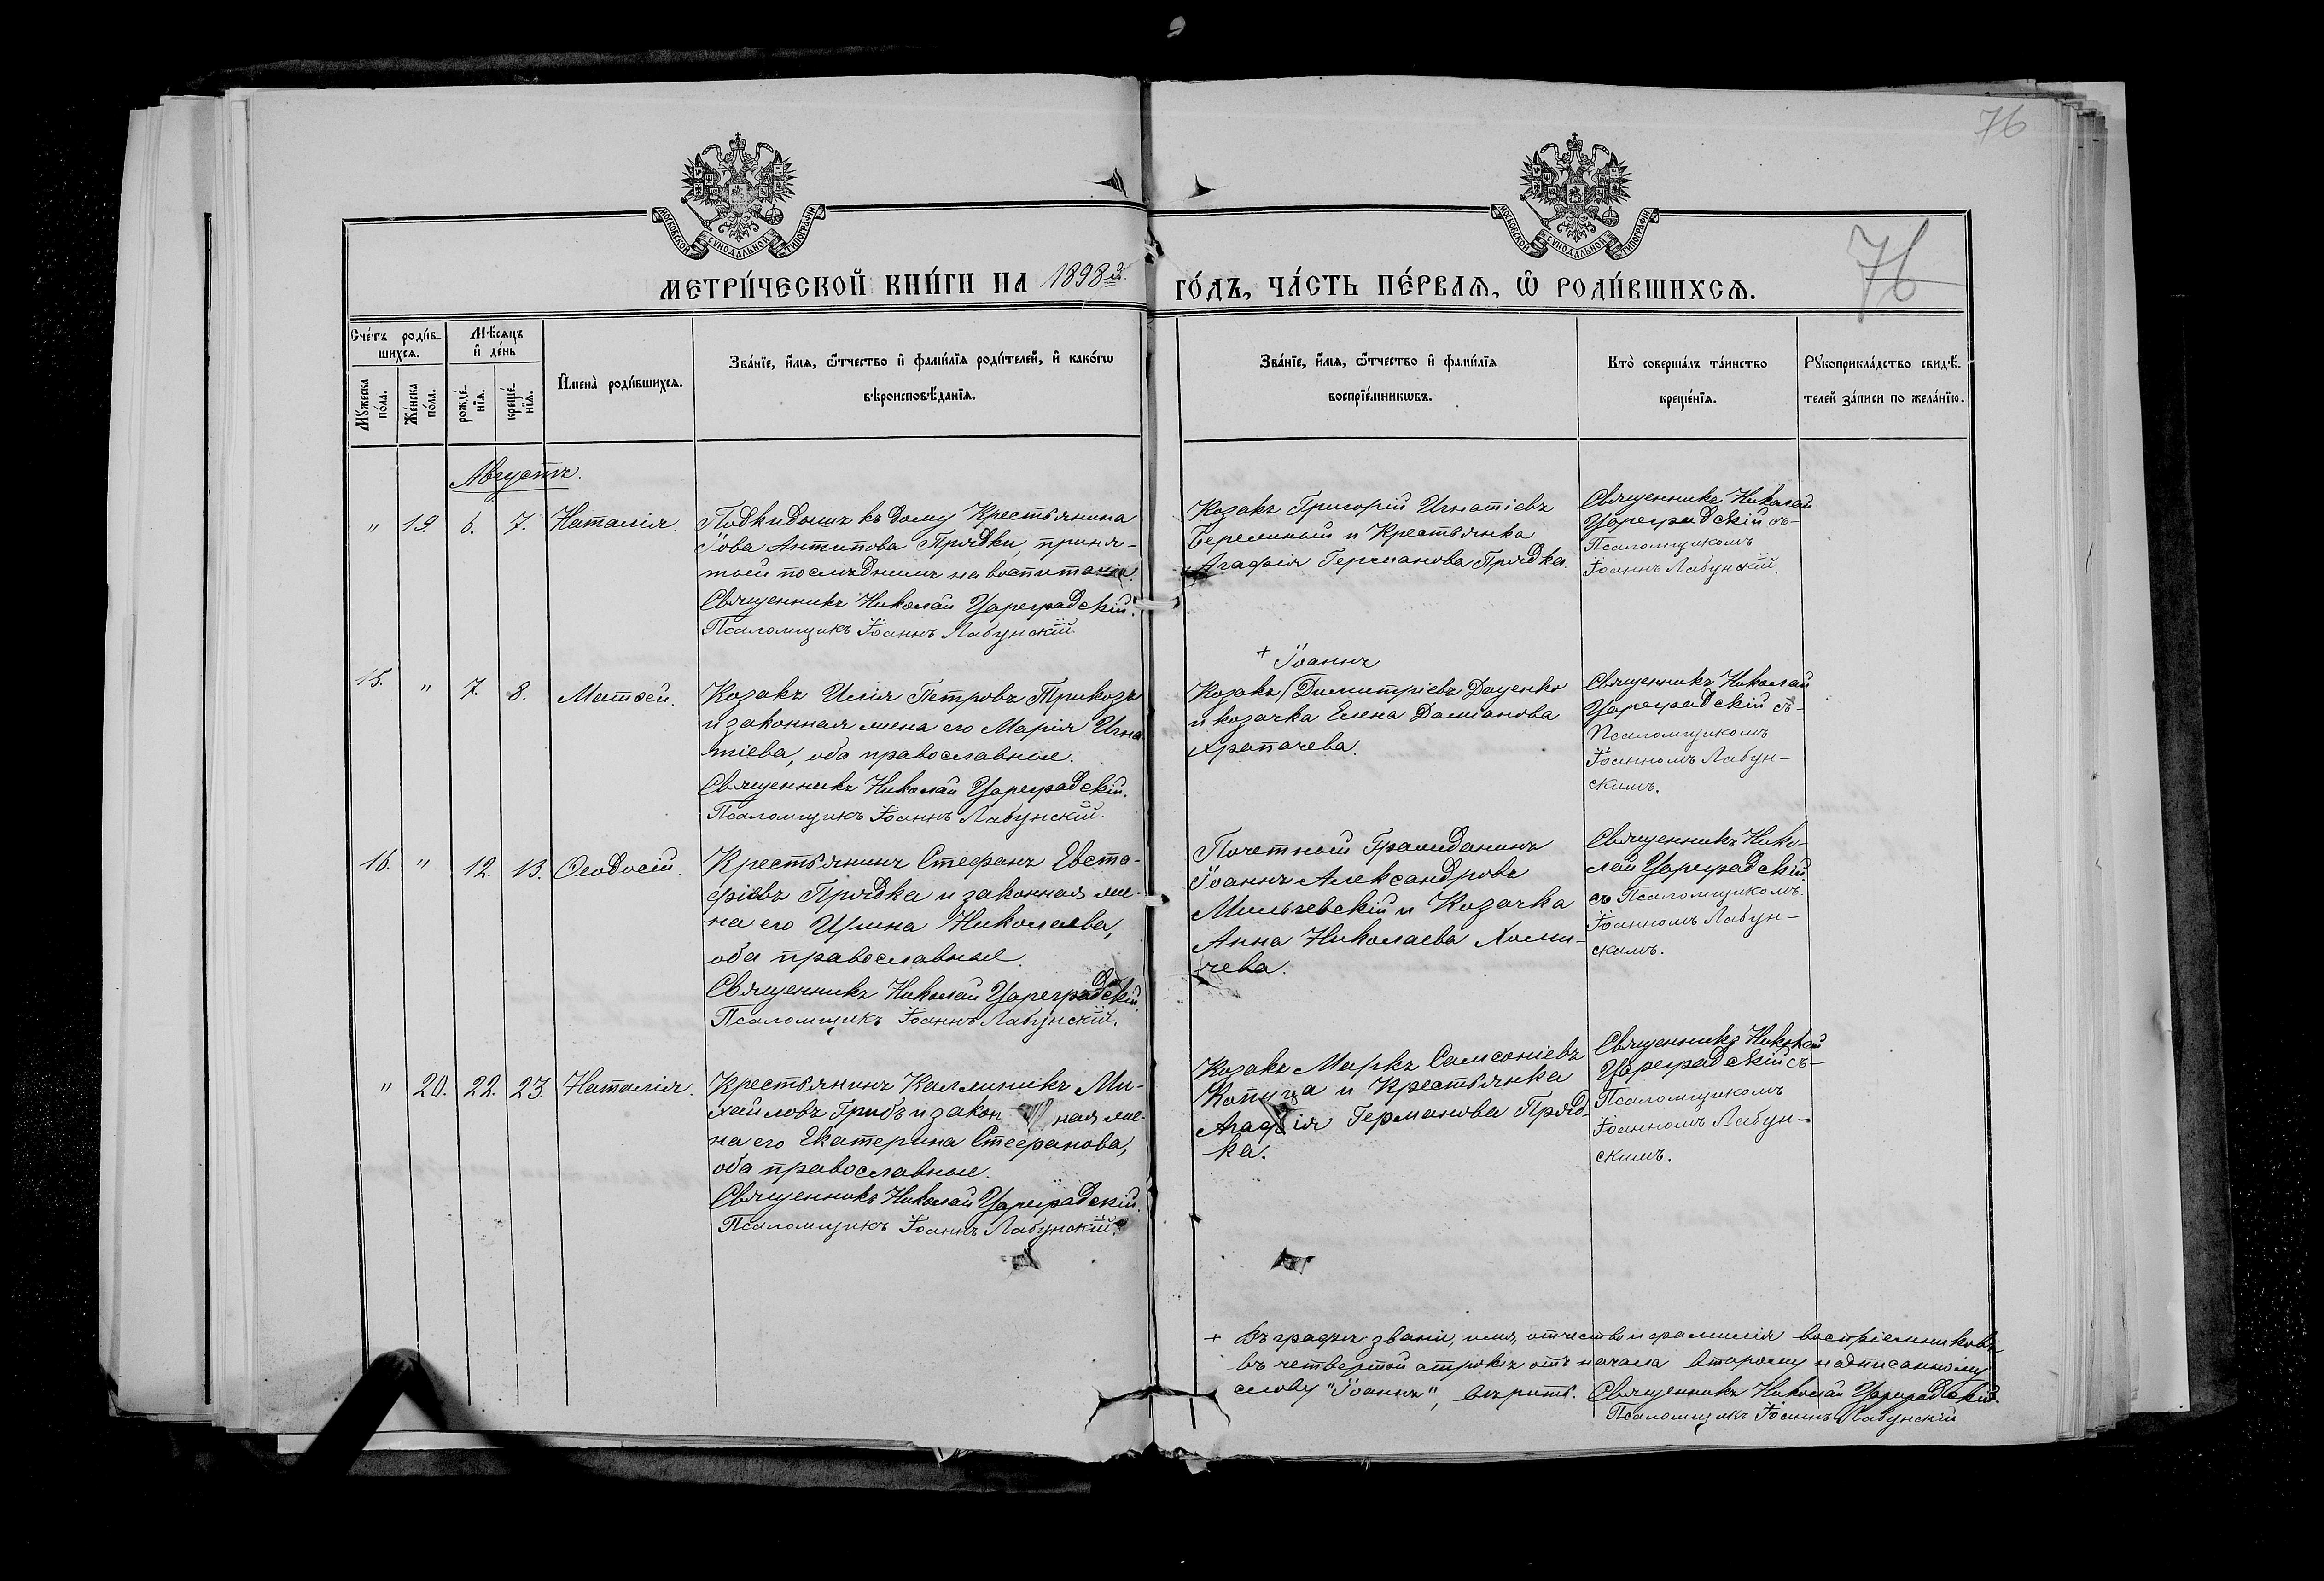 76
76
МОСКОВСКОЙ СУНОДАЛЬНОЙ ТИПОГРАФІИ
МОСКОВСКОЙ СУНОДАЛЬНОЙ ТИПОГРАФІИ
МЕТРИ́ЧЕСКОЙ КНИ́ГИ НА 1898й ГО́ДЪ, ЧА́СТЬ ПЕ́РВАѦ, Ѡ҆ РОДИ́ВШИХСѦ.
Сче́тъ роди́в-
шихсѧ.
Мꙋжеска
по́ла.
Же́нска
по́ла.
Мѣ́сѧцъ
и҆ день
рожде́-
нїѧ.
креще́-
нїѧ.
И҆мена̀ роди́вшихсѧ.
Зва́нїе, и҆́мѧ, ѻ҆́тчество и҆ фами́лїѧ роди́телей, и҆ како́гѡ
вѣроисповѣ́данїѧ.
Зва́нїе, и҆́мѧ, ѻ҆́тчество и҆ фами́лїѧ
воспрїе́мникѡвъ.
Кто̀ соверша́лъ та́инство
креще́нїѧ.
Рꙋкоприкла́дство свидѣ́-
телей за́писи по жела́нїю.
Августъ.
" 19. 6. 7. Наталія.
Подкидышъ къ дому Крестьянина
Іова Антипова Прядки, приня-
тый послѣднимъ на воспитаніе.
Священникъ Николай Цареградскій.
Псаломщикъ Іоаннъ Лабунскій.
Козакъ Григорій Игнатіевъ
и Крестьянка
Агафія Германова Прядка.
Священникъ Николай
Цареградскій съ-
Псаломщикомъ
Іоаннъ Лабунскій.
15. " 7. 8. Матѳей.
Козакъ Илія Петровъ Трикозъ
и законная жена его Марія Игна-
тіева, оба православные.
Священникъ Николай Цареградскій.
Псаломщикъ Іоаннъ Лабунскій.
+ Іоаннъ
Козакъ / Димитріевъ Доценко
и козачка Елена Даміанова
Храпачева.
Священникъ Николай
Цареградскій съ-
Псаломщикомъ
Іоанномъ Лабун-
скимъ.
16. " 12. 13. Ѳеодосій.
Крестьянинъ Стефанъ Евста-
фіевъ Прядка и законная же-
на его Ирина Николаева,
оба православные.
Священникъ Николай Цареградскій.
Псаломщикъ Іоаннъ Лабунскій.
Почетный Гражданинъ
Іоаннъ Александровъ
Мильчевскій и Козачка
Анна Николаева Хоми-
чева.
Священникъ Нико-
лай Цареградскій
съ Псаломщикомъ
Іоанномъ Лабун-
скимъ.
" 20. 22. 23. Наталія.
Крестьянинъ Каллиникъ Ми-
хайловъ Грибъ и закон ная же-
на его Екатерина Стефанова,
оба православные.
Священникъ Николай Цареградскій.
Псаломщикъ Іоаннъ Лабунскій.
Козакъ Маркъ Сампсоніевъ
Копуза и Крестьянка
Агафія Германова Пряд-
ка.
Священникъ Николай
Цареградскій съ-
Псаломщикомъ
Іоанномъ Лабун-
скимъ.
+ Въ графѣ: званіе, имя, отчество и фамилія воспріемниковъ
въ четвертой строкѣ отъ начала второму надписанному
слову "Іоаннъ", вѣрить. Священникъ Николай Цареградскій.
Псаломщикъ Іоаннъ Лабунскій